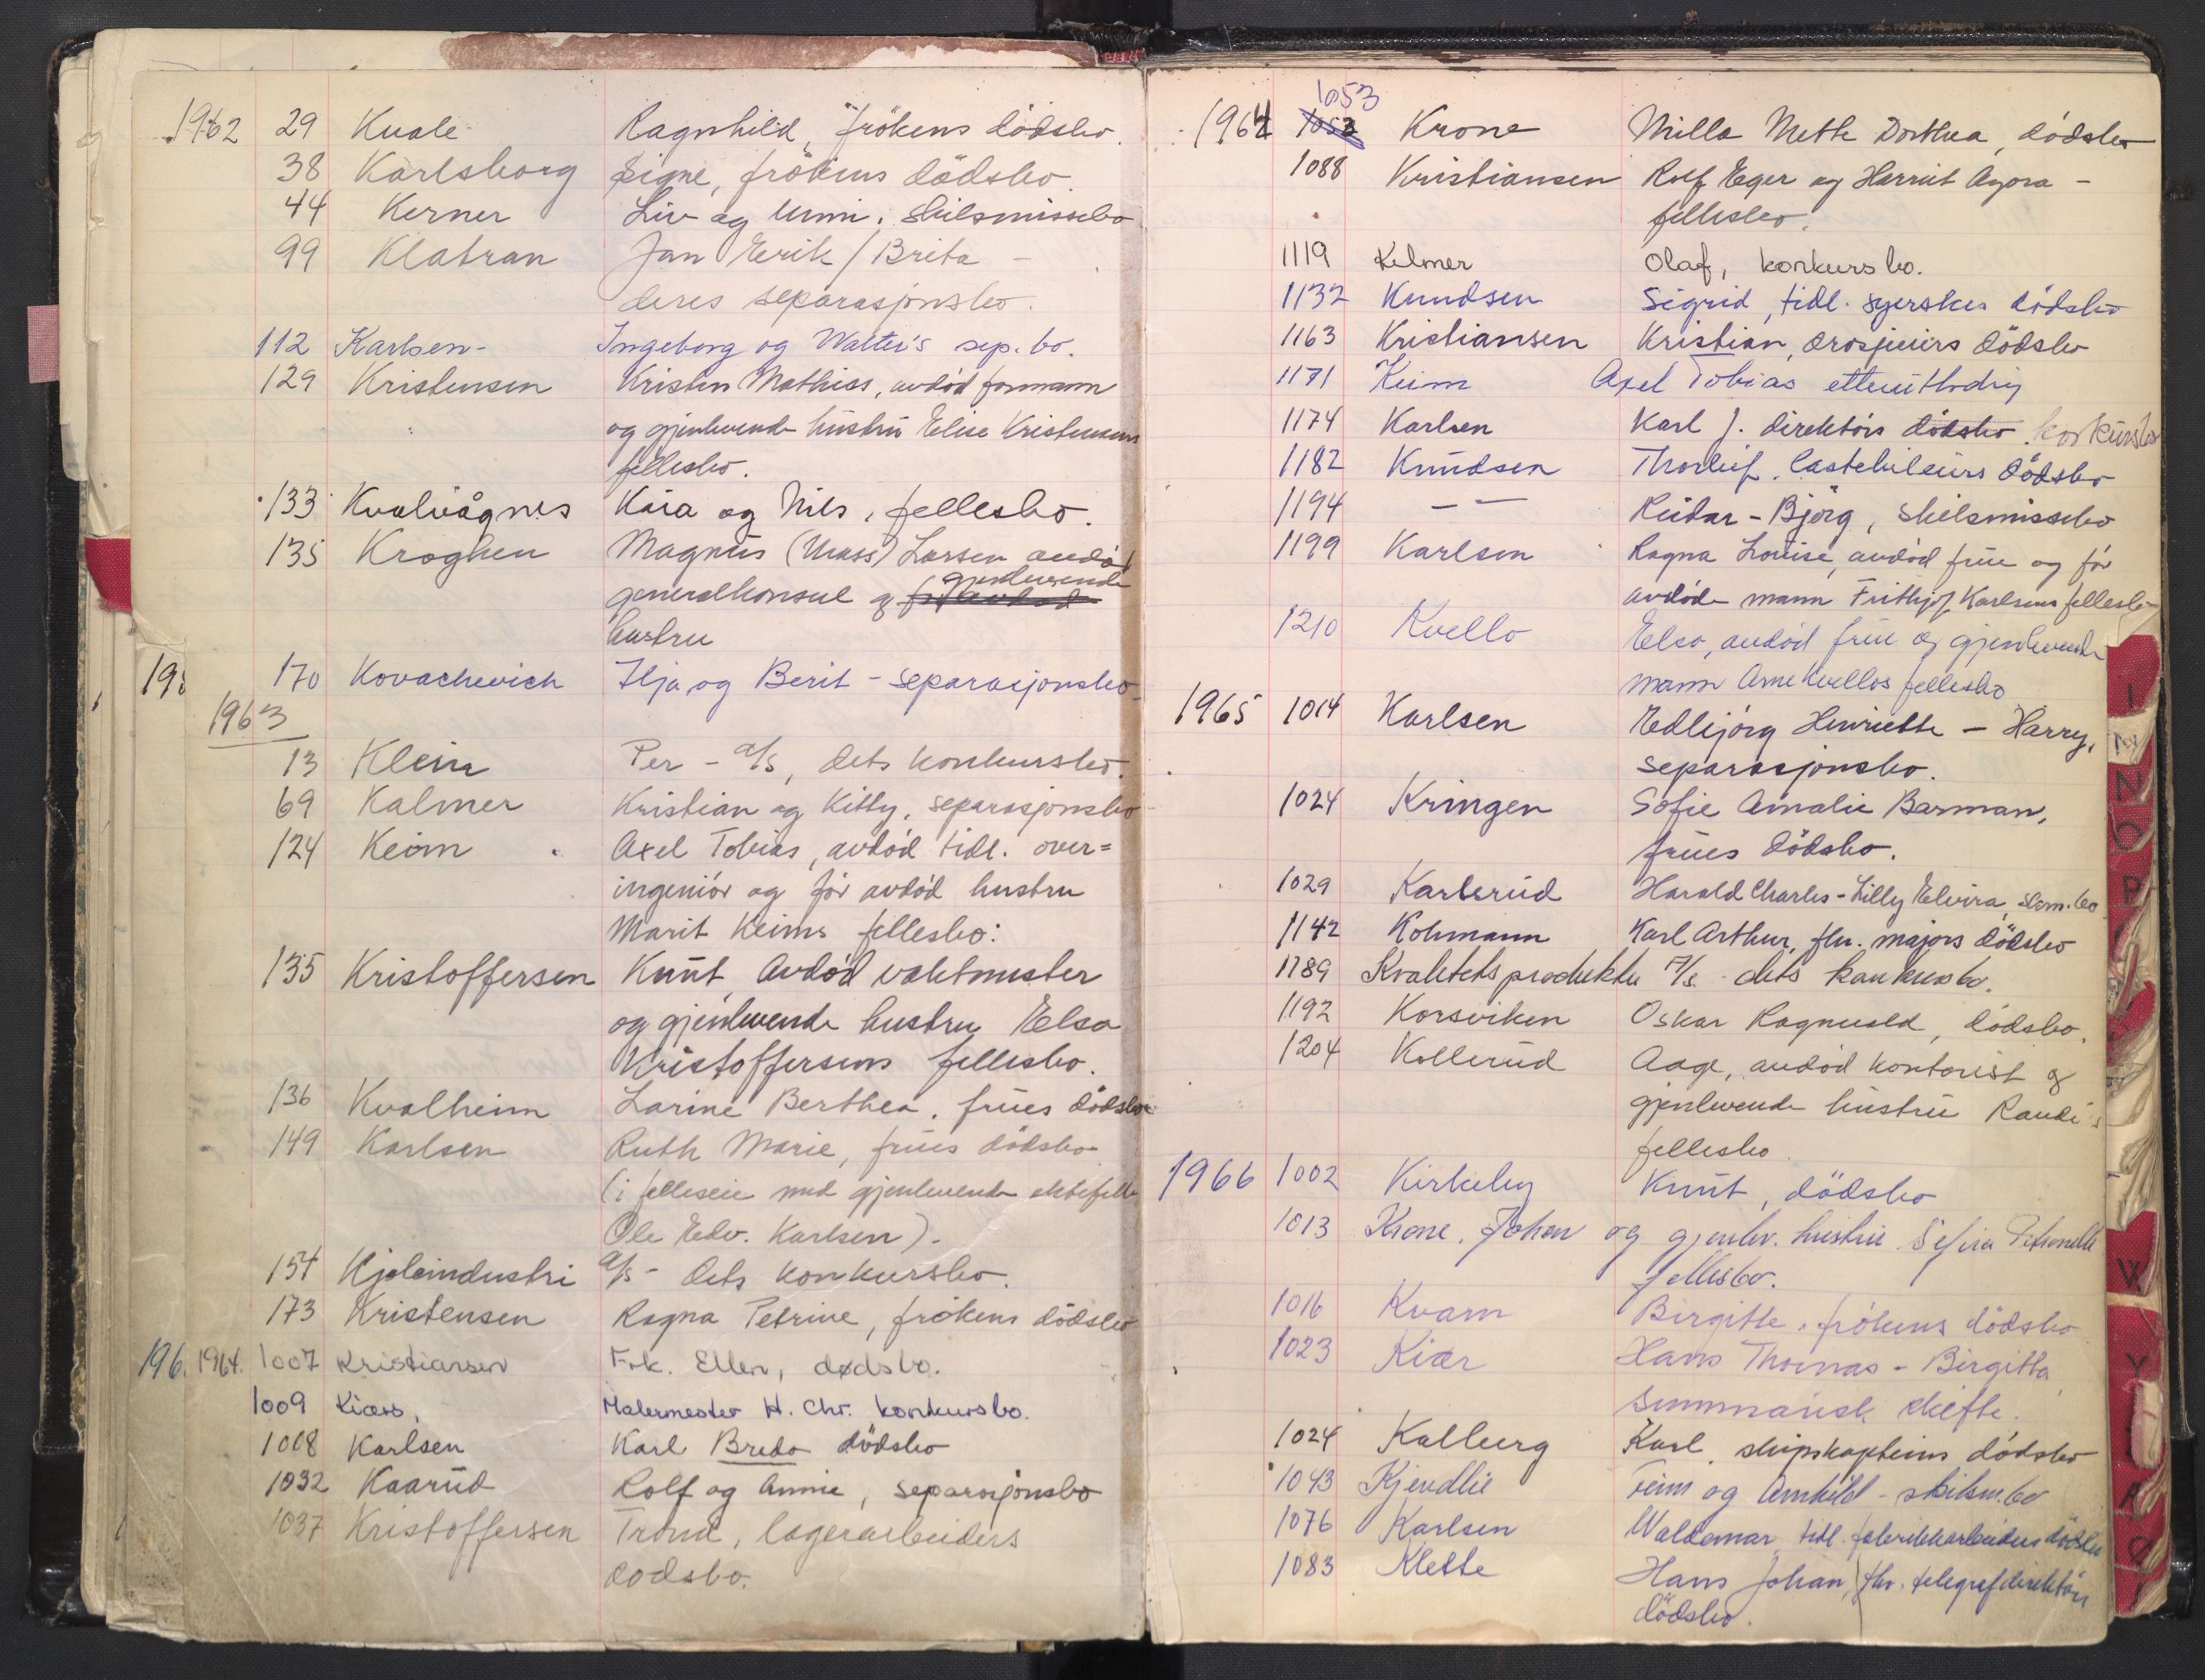 1962 29 Kvale Ragnhild, frökens dödsbo.
38 Karlsborg Signe, frökens dödsbo.
44 Kerner Liv og Unni. skilsmissebo
99 Klatran Jan Erik / Brita -
deres separasjonsbo.
112 Karlsen- Ingeborg og Walter's sep. bo.
129 Kristensen Kristen Mathias, avdöd formann
og gjenlevende hustru Elise Kristensens
fellesbo.
133 Kvalvågnes Kaia og Nils, fellesbo.
135 Kroghen Magnus (Mass) Larsen avdöd
gjenlevende
generalkonsul og før avdød
hustru
170 Kovachevich Ilja og Berit - separasjonsbo
1963
13 Klein Per - A/S, dets konkursbo.
69 Kalmer Kristian og Kitty, separasjonsbo
124 Keim Axel Tobias, avdöd tidl. over=
ingeniör og för avdöd hustru
Marit Keims fellesbo.
135 Kristoffersen Knut, avdöd vaktmester
og gjenlevende hustru Elsa
Kristoffersens fellesbo.
136 Kvalheim Larine Berthea, frues dödsbo
149 Karlsen Ruth Marie, frues dödsbo
(i felleseie med gjenlevende ektefelle
Ole Edv. Karlsen).
154 Kjeleindustri A/S - dets konkursbo.
173 Kristensen Ragna Petrine, frökens dödsbo
196. 1964. 1007 Kristiansen Frk. Ellen, dødsbo.
1009 Kiærs, Malermester H. Chr. konkursbo.
1018 Karlsen Karl Bredo dödsbo
1032 Kaarud Rolf og Annie, separasjonsbo
1037 Kristoffersen Trond, lagerarbeiders
dødsbo.
1053
1964 1052 Krone Milla Meth Dorthea, dödsbo
1088 Kristiansen Rolf Eger og Harriet Agora -
fellesbo.
1119 Kelmer Olaf, konkursbo.
1132 Knudsen Sigrid, tidl. syerskes dödsbo
1163 Kristiansen Kristian, drosjeeiers dödsbo
1171 Keim Axel Tobias etterutlodning
1174 Karlsen Karl J. direktörs dödsbo. konkursbo
1182 Knudsen Thorleif, lastebileiers dödsbo
1194 - — Reidar - Björg, skilsmissebo
1199 Karlsen Ragna Louise, avdöd frue og för
avdöde mann Frithjof Karlsens fellesbo
1210 Kvello Elsa, avdöd frue og gjenlevende
mann Arne Kvellos fellesbo
1965 1014 Karlsen Edbjörg Henriette - Harry,
separasjonsbo.
1024 Kringen Sofie Amalie Barman,
frues dödsbo.
1029 Karlsrud Harald Charles - Lilly Elvira, skm. bo
1142 Kohmann Karl Arthur, fhv. majors dödsbo
1189 Kvalitetsprodukter A/S - dets konkursbo.
1192 Korsviken Oskar Ragnvald, dödsbo.
1204 Kollerud Aage, avdöd kontorist og
gjenlevende hustru Randi's
fellesbo.
1966 1002 Kirkeby Knut, dödsbo
1013 Krone, Johan og gjenlev. hustru Petronelle
fellesbo.
1016 Kvam Birgitte, frökens dödsbo
1023 Kiær Hans Thomas - Birgitta,
summarisk skifte.
1024 Kalberg Karl, skipskapteins dödsbo
1043 Kjendlie Feim og Arnhild - skilsm. bo
1076 Karlsen Waldemar, tidl. fabrikkarbeiders dödsbo
1083 Klette Hans Johan, fhv. telegrafdirektörs
dödsbo.